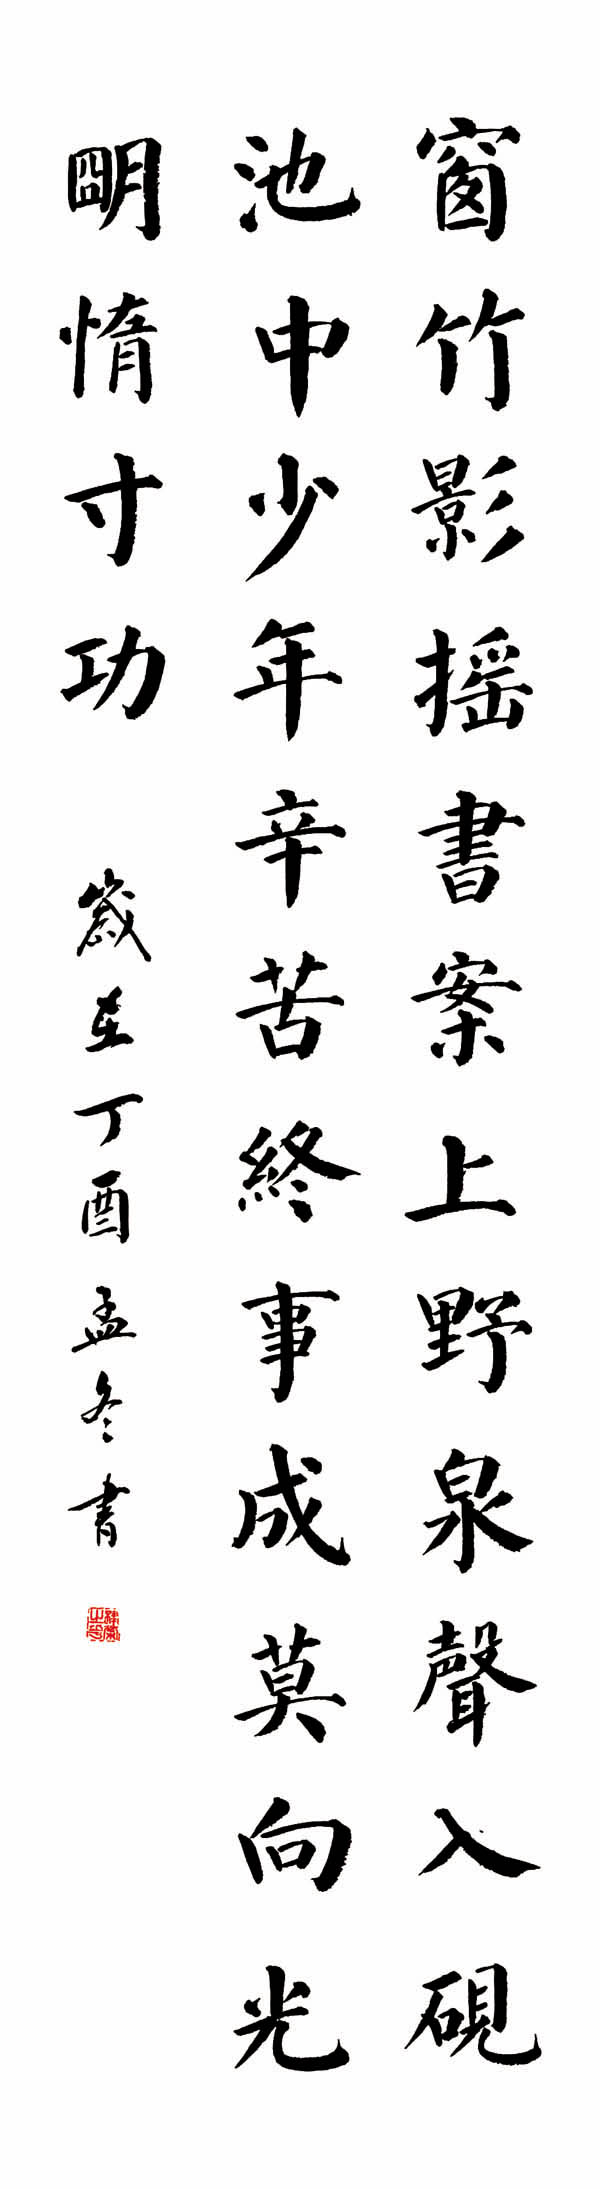 窗竹影摇書案上野泉聲入硯
池中少年辛苦終事成莫向光
朙惰寸功
歲在丁酉孟冬书